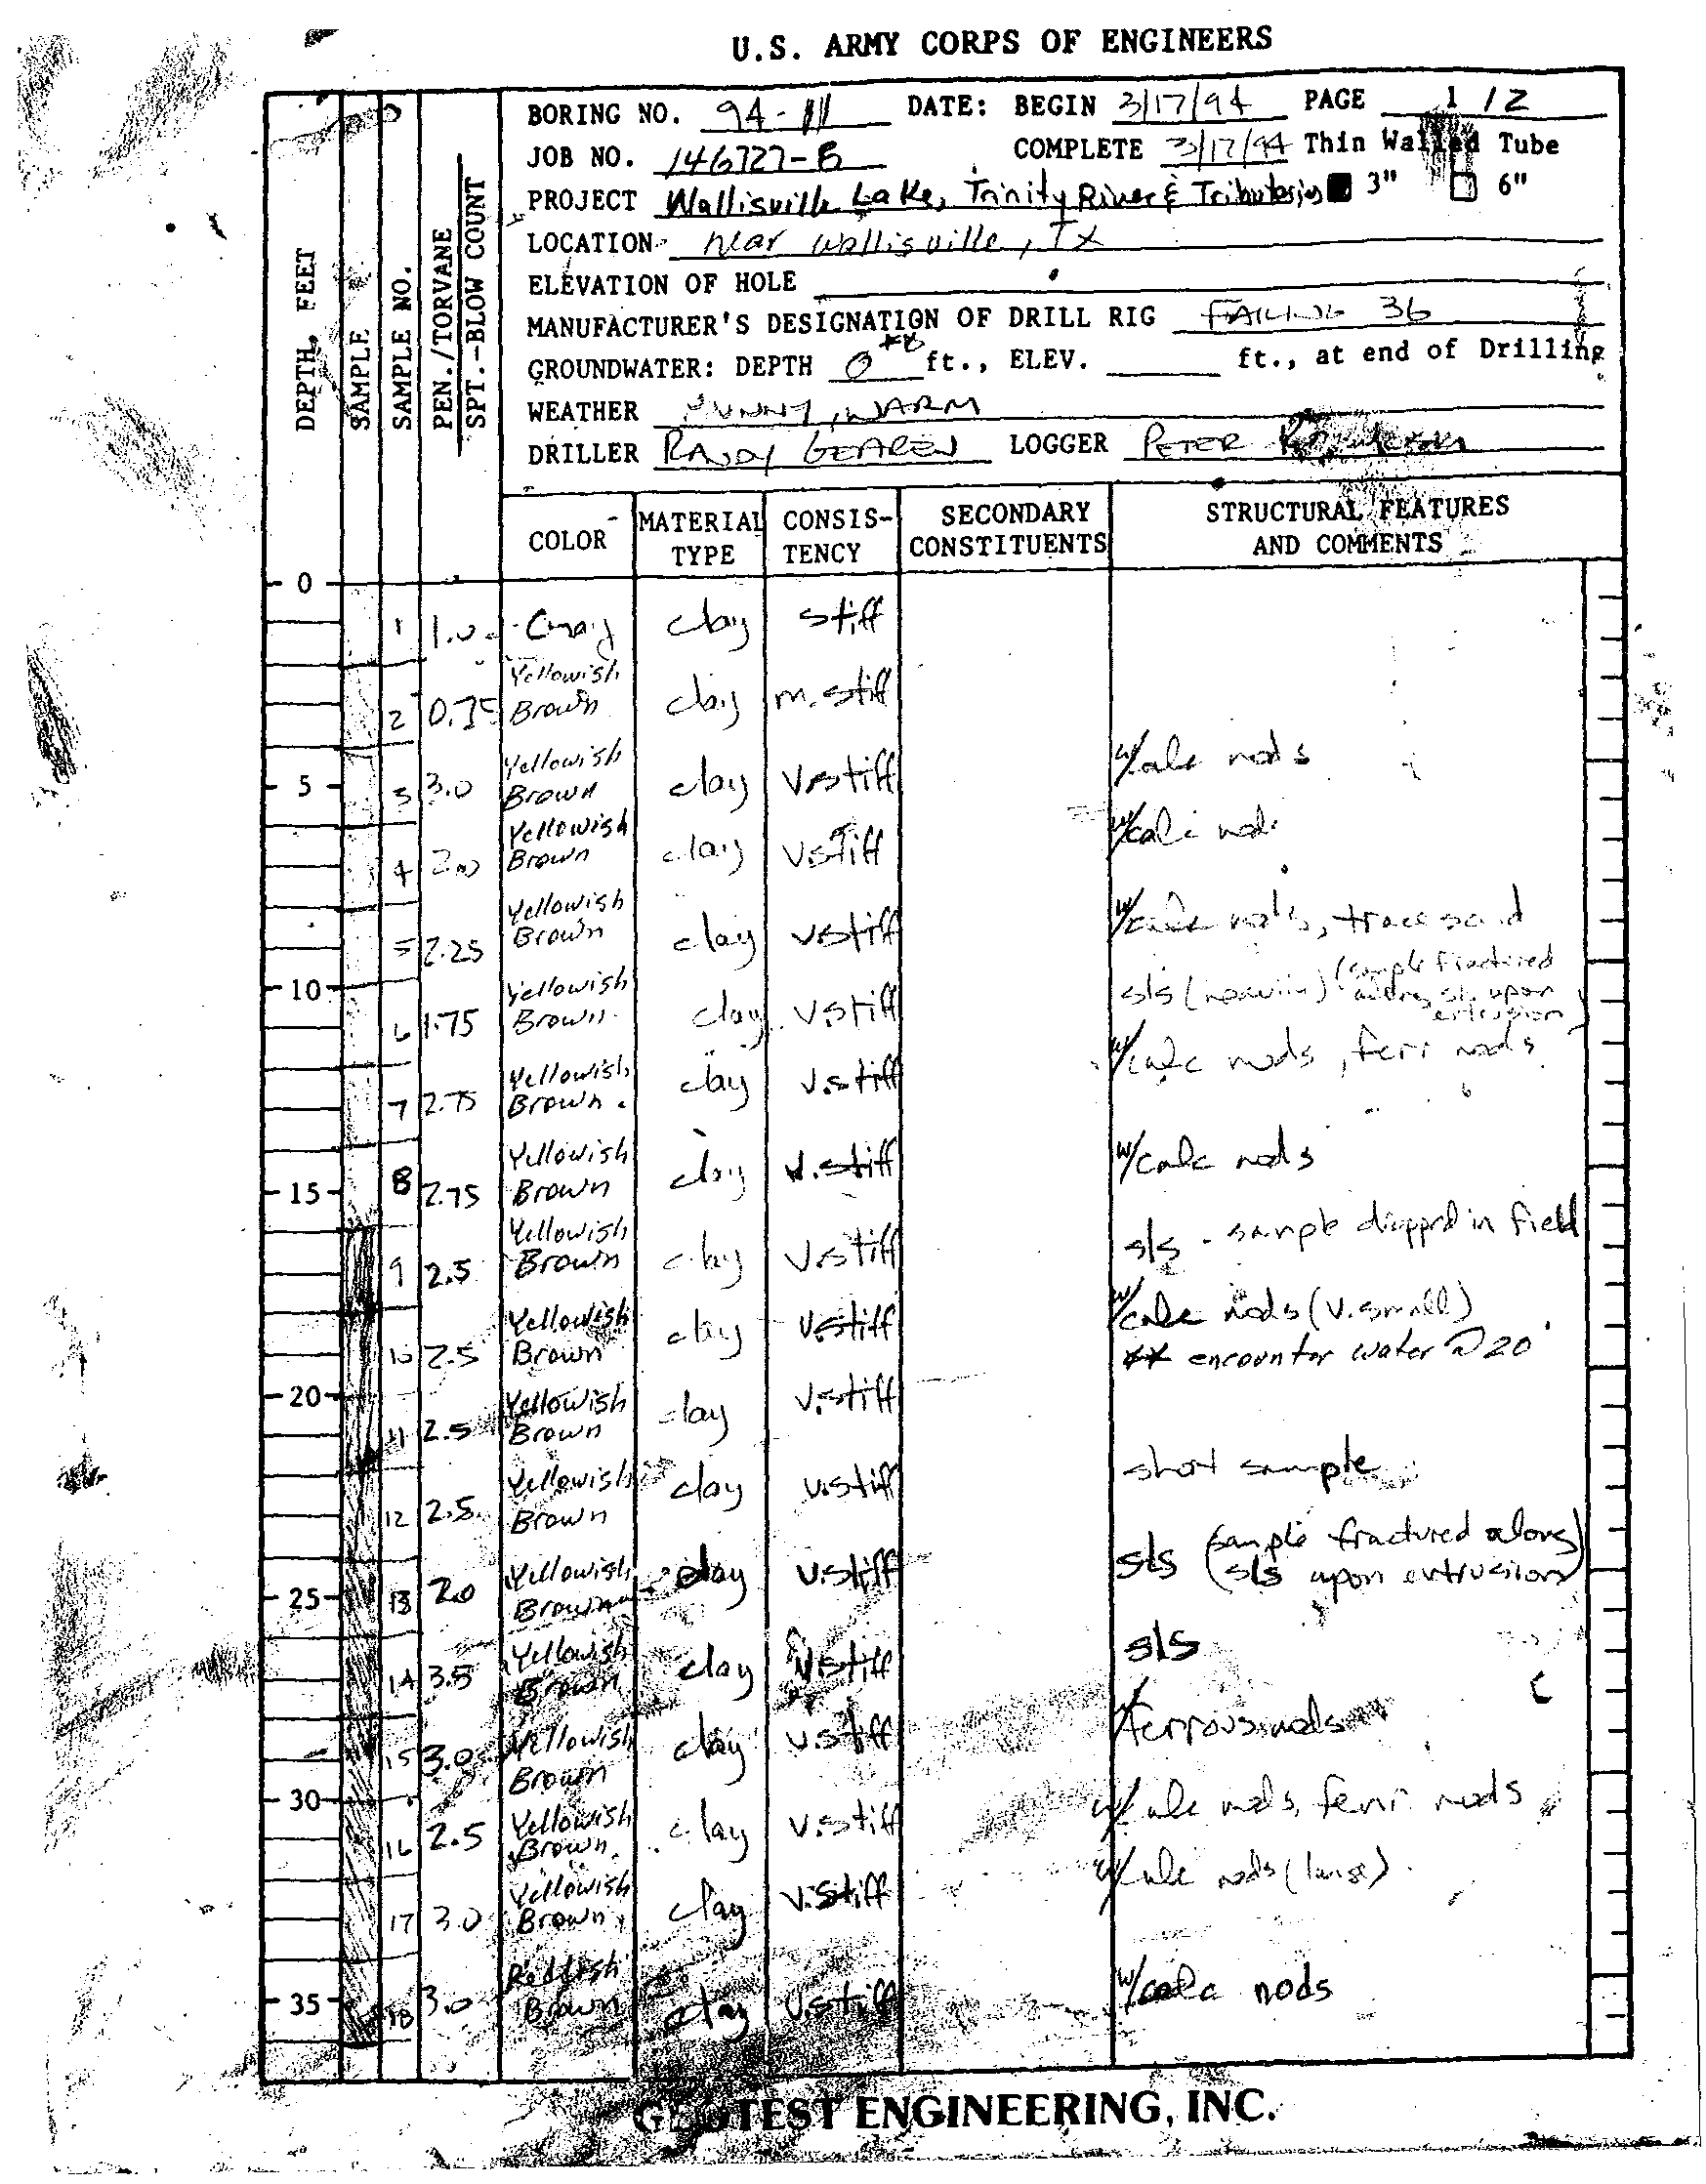 U.S. ARMY CORPS OF ENGINEERS
BORING NO. 94-111 DATE: BEGIN 3/17/94 PAGE 1 / 2
JOB NO. 146727-B COMPLETE 3/17/94 Thin Walled Tube
PROJECT Wallisville Lake, Trinity River & Tributaries 3" 6"
LOCATION near Wallisville, TX
ELEVATION OF HOLE
MANUFACTURER'S DESIGNATION OF DRILL RIG FAILING 36
GROUNDWATER: DEPTH 0 ** ft., ELEV. ft., at end of Drilling
WEATHER SUNNY, WARM
DRILLER RANDY GEAREN LOGGER PETER
DEPTH, FEET
SAMPLE
SAMPLE NO.
PEN./TORVANE
SPT.-BLOW COUNT
COLOR MATERIAL TYPE CONSIS-TENCY SECONDARY CONSTITUENTS STRUCTURAL FEATURES AND COMMENTS
0
1 1.0 Gray clay stiff
2 0.75 Yellowish Brown clay m. stiff
5 3 3.0 Yellowish Brown clay v.stiff w/calc nods
4 Yellowish Brown clay v.stiff w/calc nods
5 2.25 Yellowish Brown clay v.stiff w/calc nods, trace sand
10 6 1.75 Yellowish Brown clay v.stiff sls (sample fractured along sls upon extrusion)
7 2.75 Yellowish Brown clay v.stiff w/calc nods, ferr nods
15 8 2.75 Yellowish Brown clay v.stiff w/calc nods
9 2.5 Yellowish Brown clay v.stiff sls - sample dropped in field
10 2.5 Yellowish Brown clay v.stiff w/calc nods (v.small)
** encounter water @ 20'
20 11 2.5 Yellowish Brown clay v.stiff
12 2.5 Yellowish Brown clay v.stiff short sample
25 13 2.0 Yellowish Brown clay v.stiff sls (sample fractured along sls upon extrusion)
14 3.5 Yellowish Brown clay v.stiff sls
15 3.0 Yellowish Brown clay v.stiff w/ferrous nods
30 16 2.5 Yellowish Brown clay v.stiff w/calc nods, ferr nods
17 3.0 Yellowish Brown clay v.stiff w/calc nods (large)
35 18 3.0 Reddish Brown clay v.stiff w/calc nods
GEOTEST ENGINEERING, INC.